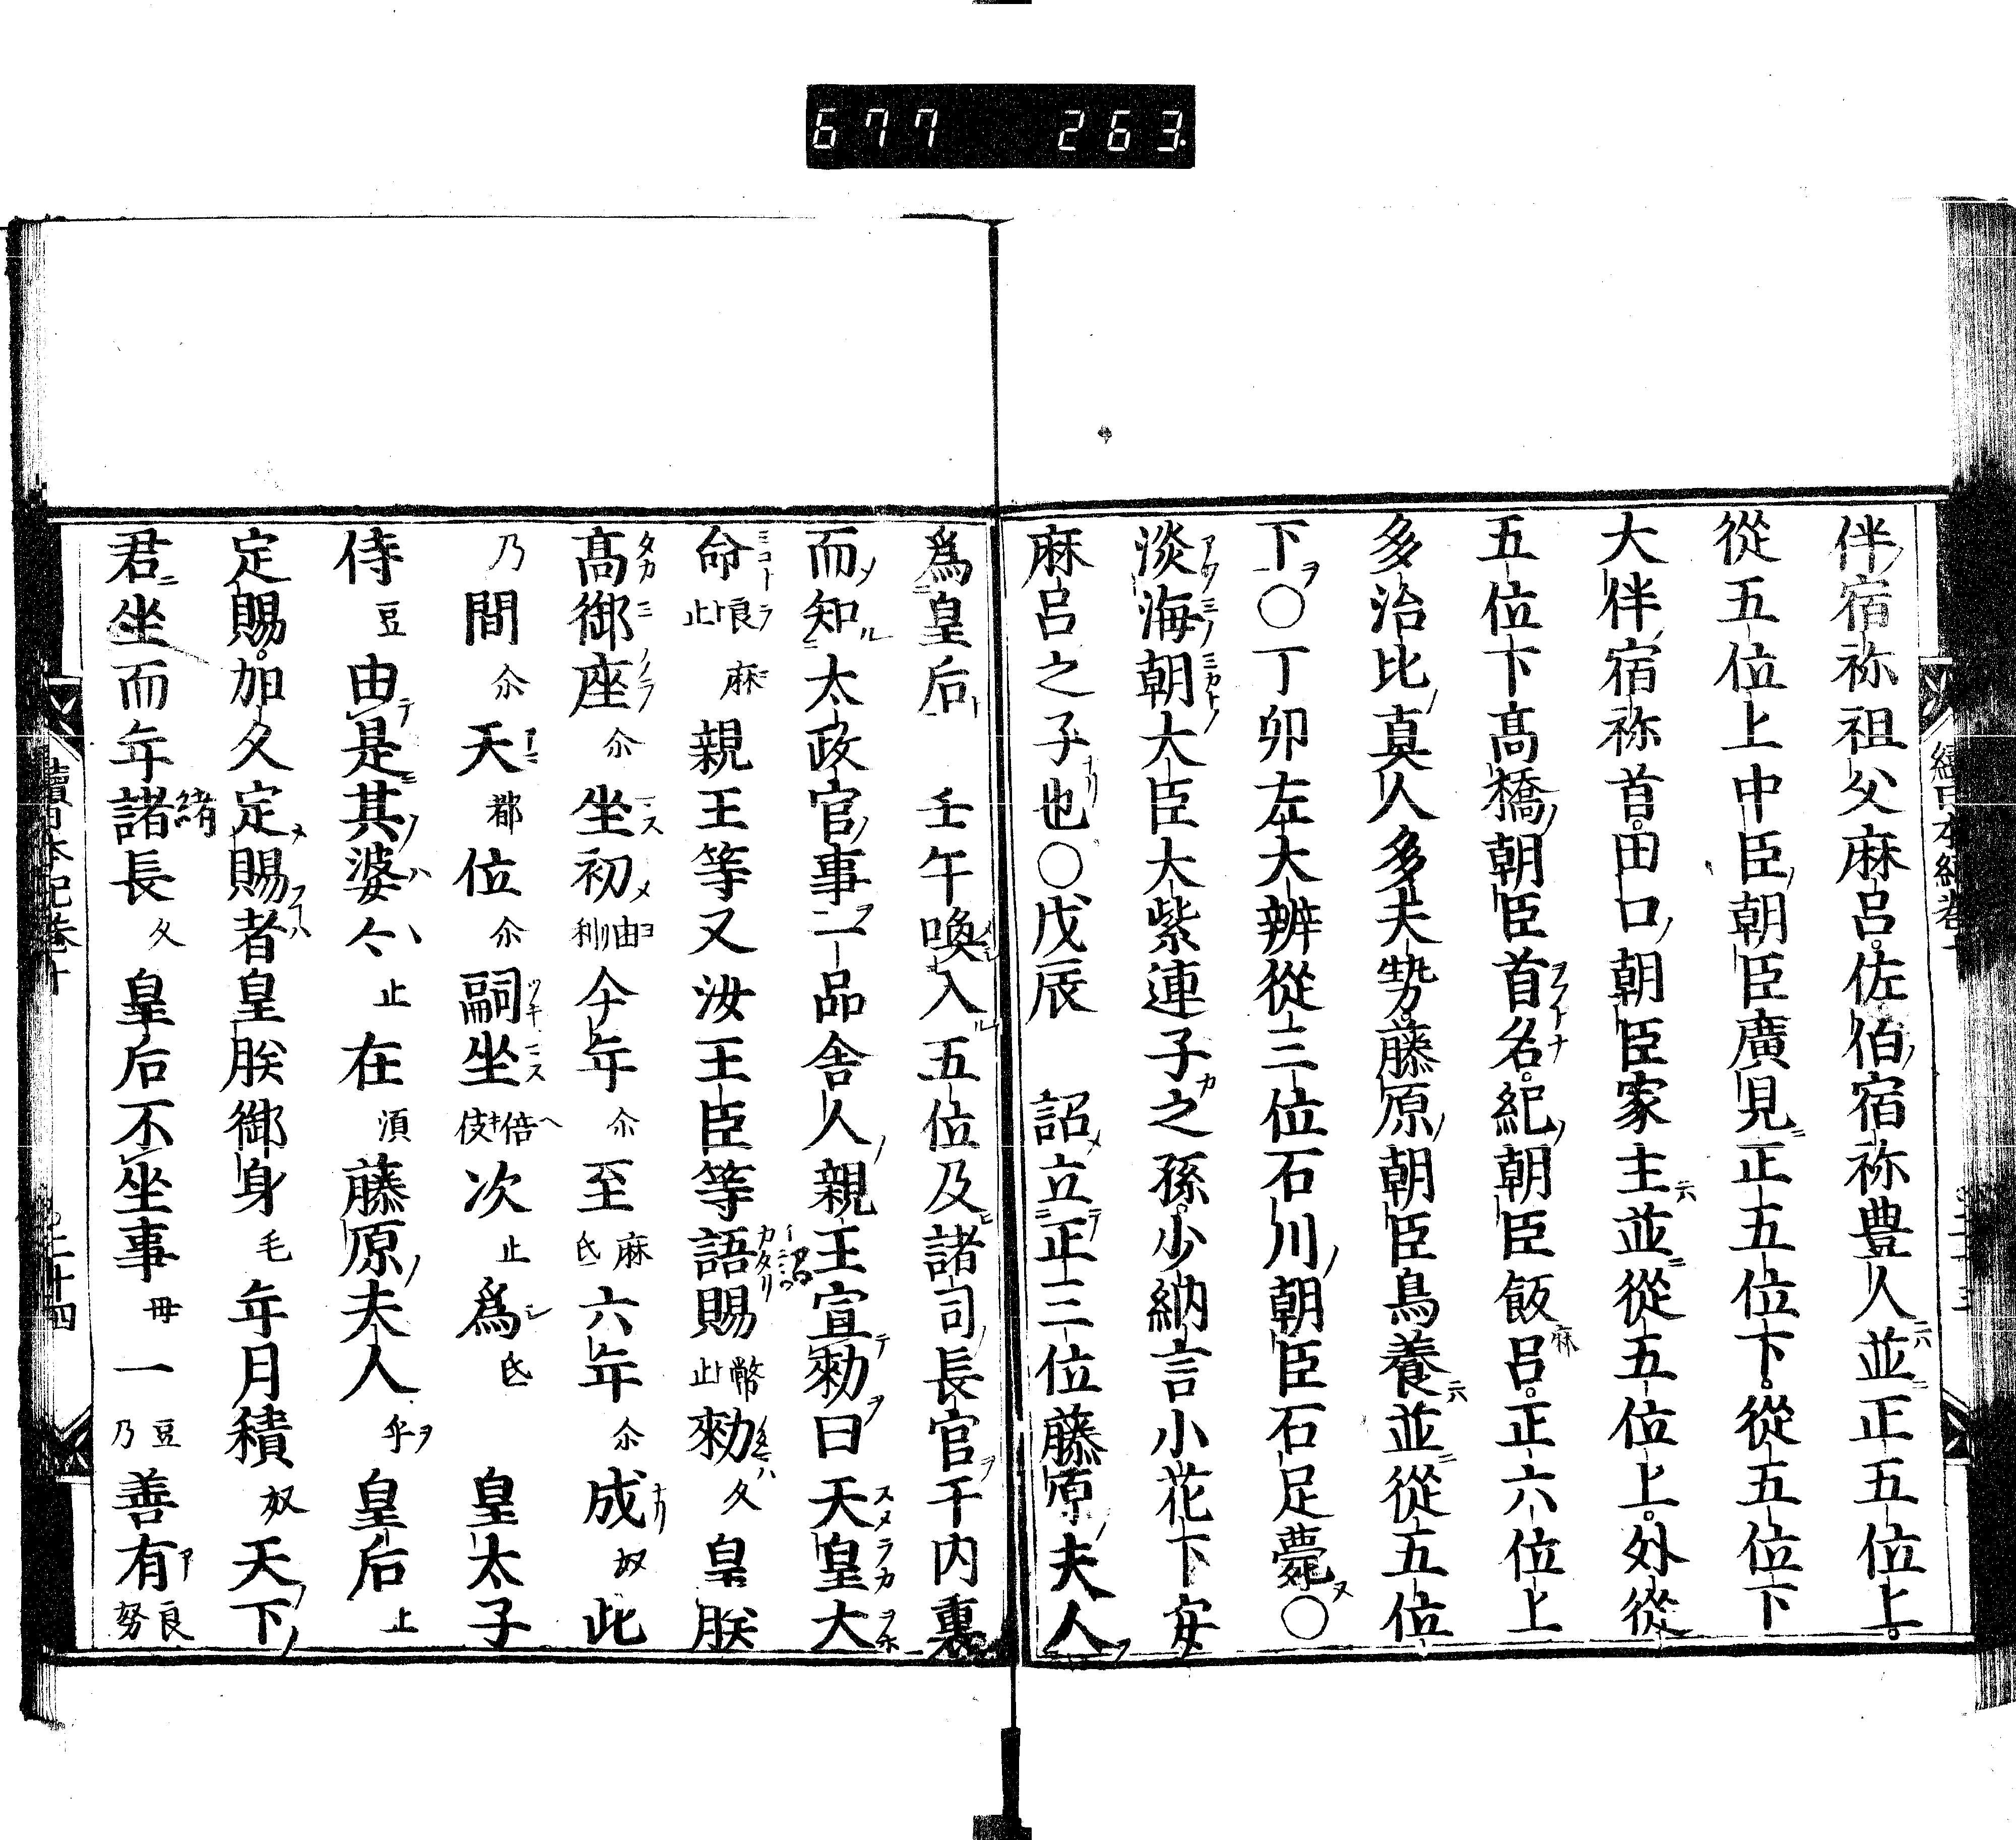 677 263
伴宿祢祖父麻呂。佐伯宿祢豊人並正五位上。
從五位上中臣朝臣廣見正五位下。從五位下
大伴宿祢首。田口朝臣家主並從五位上。外從
五位下髙橋朝臣首名。紀朝臣飯麻呂。正六位上
多治比真人多夫勢。藤原朝臣鳥養並從五位
下○丁卯左大辨從三位石川朝臣石足薨○
淡海朝大臣大紫連子之孫。少納言小花下安
麻呂之子也○戊辰 詔立正三位藤原夫人
爲皇后 壬午喚入五位及諸司長官于内裏
而知太政官事二品舎人親王宣勅曰天皇大
命良止麻親王等又汝王臣等語賜幣止勅久皇朕
髙御座尒坐初由利今年尒至麻氐六年尒成奴此
乃間尒天都位尒嗣坐倍伎次止爲氐 皇太子
侍豆由是其婆々止在湏藤原夫人乎皇后止
定賜。加久定賜者皇朕御身毛年月積奴天下
君坐而年諸緒長久皇后不坐事毋一豆乃善有良努
續日本紀卷十 四